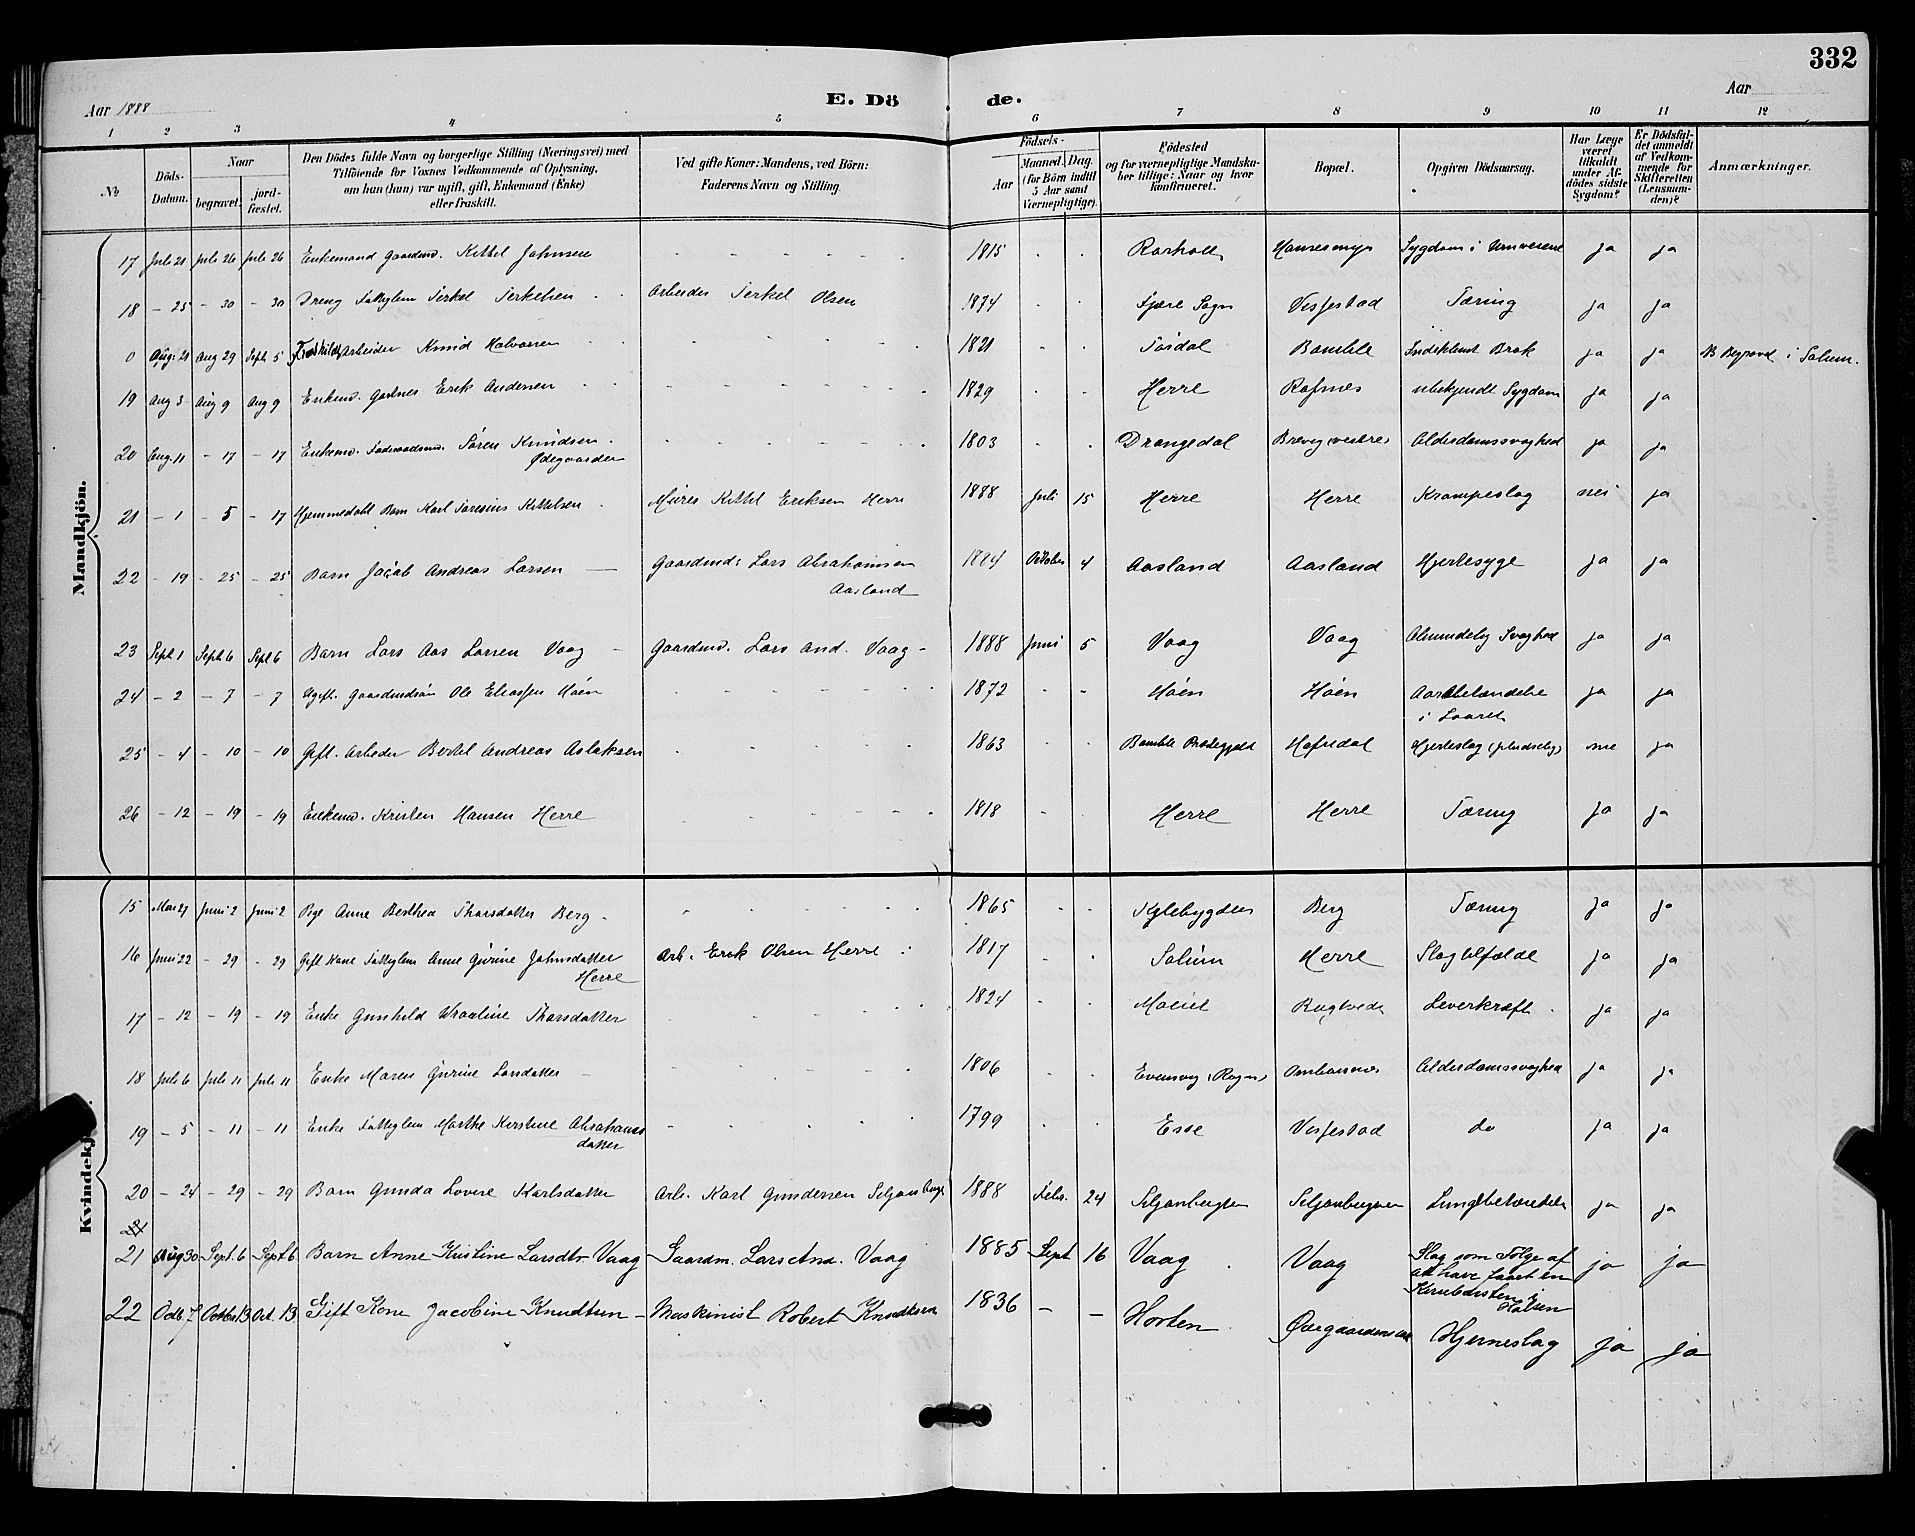 332
Aar 1888
E. Dö de.
Aar
1 2 3 4 5 6 7 8 9 10 11 12
No
Döds-Datum.
Naar
begravet.
jord-fæstet.
Den Dödes fulde Navn og borgerlige Stilling (Næringsvei) med
Tilföiende for Voxnes Vedkommende af Oplysning,
om hun (han) var ugift, gift, Enkemand (Enke)
eller fraskilt.
Ved gifte Koner: Mandens, ved Börn:
Faderens Navn og Stilling.
Födsels-
Aar
Maaned. Dag.
(for Börn indtil
5 Aar samt
Værnepligtige).
Födested
og for værnepligtige Mandska-
ber tillige: Naar og hvor
konfirmeret.
Bopæl.
Opgiven Dödsaarsag.
Har Læge
været
tilkaldt
under Af-
dödes sidste
Sygdom?
Er Dödsfal-
det anmeldt
af Vedkom-
mende for
Skifteretten
(Lensman-
den)?
Anmærkninger.
Mandkjön.
17 Juli 21 Juli 26 Juli 26 Enkemand Gaardmd. Kittel Johnsen 1815 Rorholt Hansesmyr Sygdom i ja ja
18 - 25 - 30 - 30 Dreng Fattiglem Terkel Terkelsen Arbeider Terkel Olsen 1874 Fjære Sogn Vissestad Tæring ja ja
0 Aug. 21 Aug 29 Sept. 5 Fraskildt Arbeider Knud Halvorsen 1821 Tordal Bamble Indeklemt Brok ja ja NB Begravd i Solum.
19 Aug 3 Aug 9 Aug 9 Enkemd. Erik Andersen 1829 Herre Rafnes ubekjendt Sygdom ja ja
20 Aug. 11 - 17 - 17 Enkemd. Föderaadsmd. Søren Knudsen
Ødegaarden 1803 Drangedal Brevig vestre Alderdomssvaghed ja ja
21 - 1 - 5 - 17 Hjemmedøbt Barn Karl Kittelsen Murer Kittel Eriksen Herre 1888 Juli 15 Herre Herre Krampeslag nei ja
22 - 19 - 25 - 25 Barn Jacob Andreas Larsen Gaardmd: Lars Abrahamsen
Aasland 1884 Oktober 4 Aasland Aasland Hjertesyge ja ja
23 Sept. 1 Sept. 6 Sept 6 Barn Lars Aas Larsen Vaag Gaardmd. Lars And. Vaag 1888 Juni 5 Vaag Vaag Almindelig Svaghed ja ja
24 - 2 - 7 - 7 Ugift. Gaardmdsön Ole Eliassen Høen 1872 Høen Høen Aarebetændelse
i Laaret ja ja
25 - 4 - 10 - 10 Gift. Arbeider Bertel Andreas Aslaksen 1863 Bamble Præstegjeld Hafredal Hjerteslag (pludselig) nei ja
26 - 12 - 19 - 19 Enkemd. Kristen Hansen Herre 1818 Herre Herre Tæring ja ja
Kvindekj
15 Mai 27 Juni 2 Juni 2 Pige Anne Berthea Thorsdatter Berg 1865 Kjlebygden Berg Tæring ja ja
16 Juni 22 - 29 - 29 Gift Kone Fattiglem Anne Gurine Johnsdatter
Herre Arb. Erik Olsen Herre 1817 Solum Herre Slagtilfælde ja ja
17 - 12 - 19 - 19 Enke Gunhild Thorsdatter 1824 Rugtvedt Leverkræft ja ja
18 Juli 6 Juli 11 Juli 11 Enke Maren Gurine Larsdatter 1806 Ombarsnes Alderdomssvaghed ja ja
19 - 5 - 11 - 11 Enke Fattiglem Marthe Kirstine Abrahams
datter 1799 Esse Vissestad do ja ja
20 - 24 - 29 - 29 Barn Gunda Lovise Karlsdatter Arb. Karl Gundersen 1888 Febr. 24 Lungebetændelse ja ja
21 Aug 30 Sept. 6 Sept. 6 Barn Anne Kristine Larsdtr. Vaag Gaardm. Lars And. Vaag 1885 Sept 16 Vaag Vaag Slag som Følge af
at have faaet en
i
Halsen ja ja
22 Octb. 7 Octbr. 13 Oct. 13 Gift Kone Jacobine Knudtsen Maskinist Robert Knudtsen 1836 — — Horten Hjerneslag ja ja